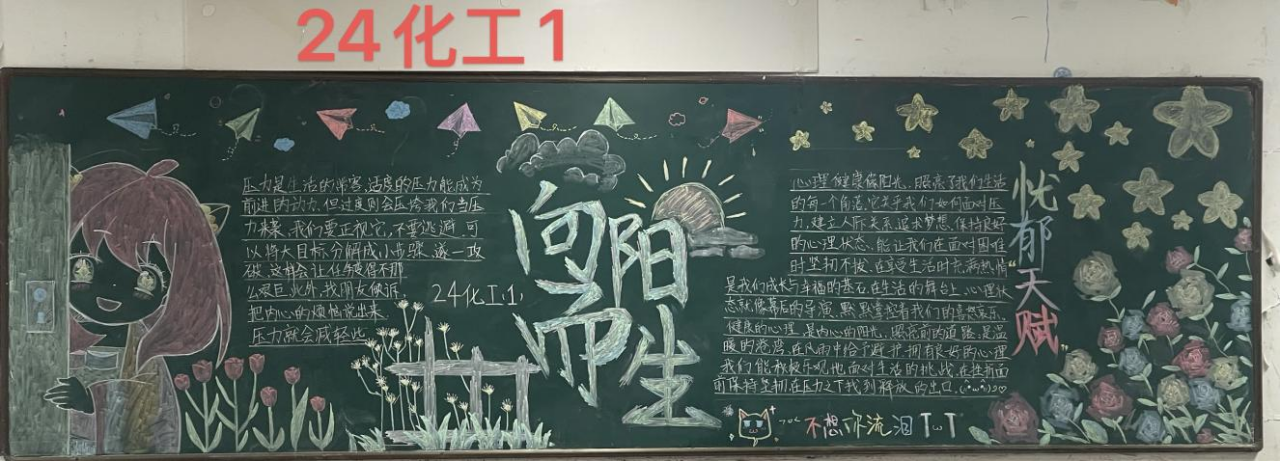 24化工1
压力是生活的常客,适度的压力能成为
前进的动力,但过度则会压垮我们.当压
力来袭,我们要正视它,不要逃避.可
以将大目标分解成小步骤,逐一攻
破,这样会让任务变得不那
么艰巨.此外,找朋友倾诉,
把内心的烦恼说出来
压力就会减轻些.
24化工1
向阳
而生
心理健康像阳光,照亮了我们生活
的每一个角落,它关乎我们如何面对压
力,建立人际关系,追求梦想.保持良好
的心理状态,能让我们在面对困难
时坚韧不拔,在享受生活时充满热情
是我们成长与幸福的基石.在生活的舞台上,心理状
态就像幕后的导演,默默掌控着我们的喜怒哀乐.
健康的心理,是内心的阳光,照亮前的道路,是温
暖的港湾,在风雨中给予避护.拥有良好的心理
我们能积极乐观地面对生活的挑战,在挫折面
前保持坚韧,在压力之下找到释放的出口.
忧郁天赋
不想你流泪TwT